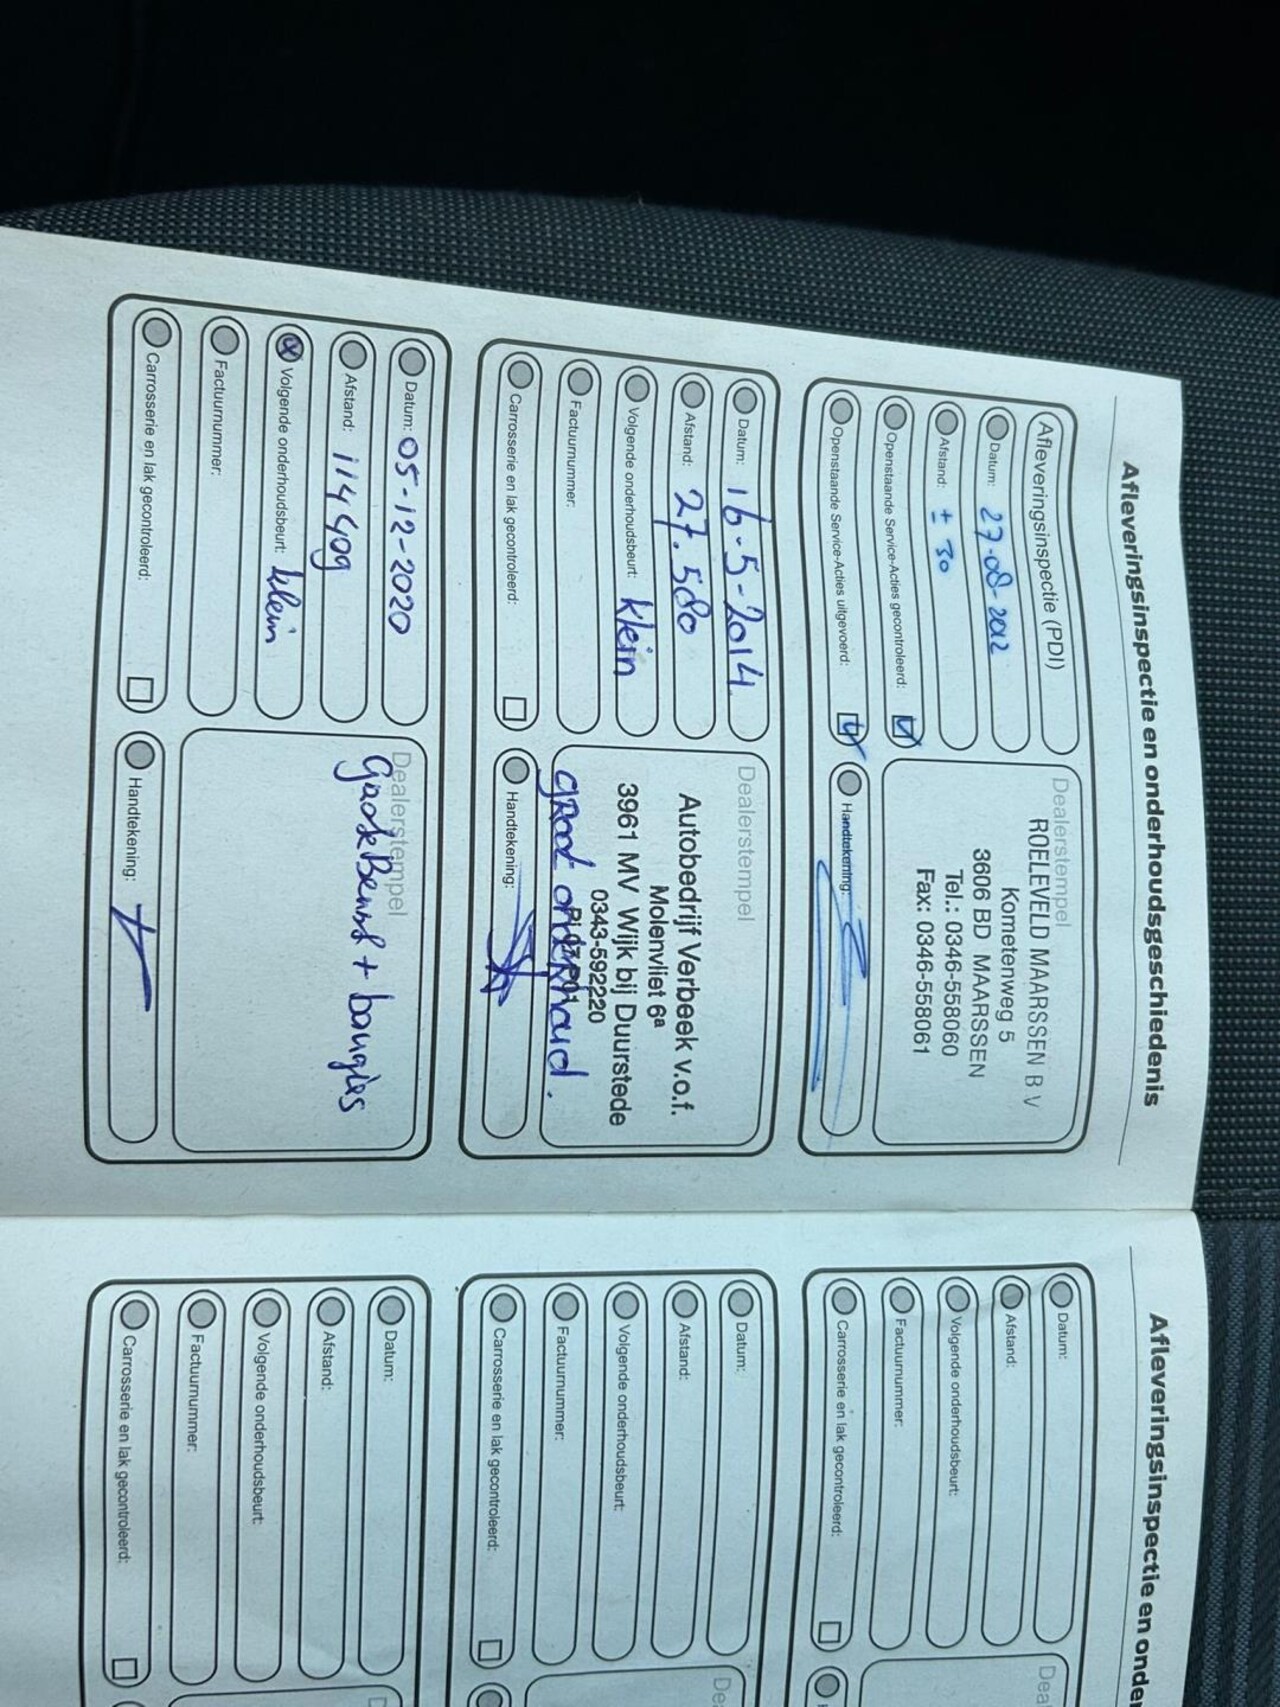 Afleveringsinspectie en onderhoudsgeschiedenis
Afleveringsinspectie (PDI)
Datum: 27-08-2012
Afstand: ± 30
Openstaande Service-Acties gecontroleerd:
Openstaande Service-Acties uitgevoerd:
Dealerstempel
ROELEVELD MAARSSEN B V
Kometenweg 5
3606 BD MAARSSEN
Tel.: 0346-558060
Fax: 0346-558061
Handtekening:
Datum: 16-5-2014
Afstand: 27.580
Volgende onderhoudsbeurt: klein
Factuurnummer:
Carrosserie en lak gecontroleerd:
Dealerstempel
Autobedrijf Verbeek v.o.f.
Molenvliet 6ª
3961 MV Wijk bij Duurstede
0343-592220
groot onderhoud.
Handtekening:
Datum: 05-12-2020
Afstand:
Volgende onderhoudsbeurt: klein
Factuurnummer:
Carrosserie en lak gecontroleerd:
Dealerstempel
+ bougies
Handtekening:
Afleveringsinspectie en onder
Datum:
Afstand:
Volgende onderhoudsbeurt:
Factuurnummer:
Carrosserie en lak gecontroleerd:
Dea
Datum:
Afstand:
Volgende onderhoudsbeurt:
Factuurnummer:
Carrosserie en lak gecontroleerd:
De
Datum:
Afstand:
Volgende onderhoudsbeurt:
Factuurnummer:
Carrosserie en lak gecontroleerd:
D